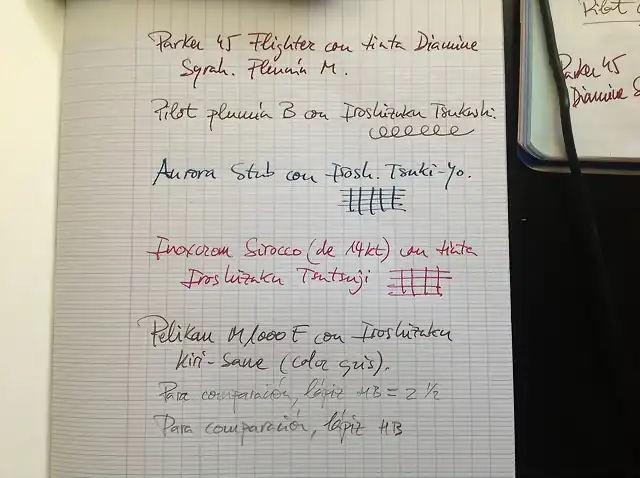 Parker 45 Flighter con tinta Diamine
Syrah. Plumín M.
Pilot plumín B con Iroshizuku Tsukushi.
Aurora Stub con Irosh. Tsuki-Yo.
Inoxcrom Sirocco (de 14kt) con tinta
Iroshizuku Tsutsuji
Pelikan M1000 F con Iroshizuku
Kiri-Same (color gris).
Para comparación, lápiz HB = 2 1/2
Para comparación, lápiz HB
Pilot
Parker 45
Diamine S